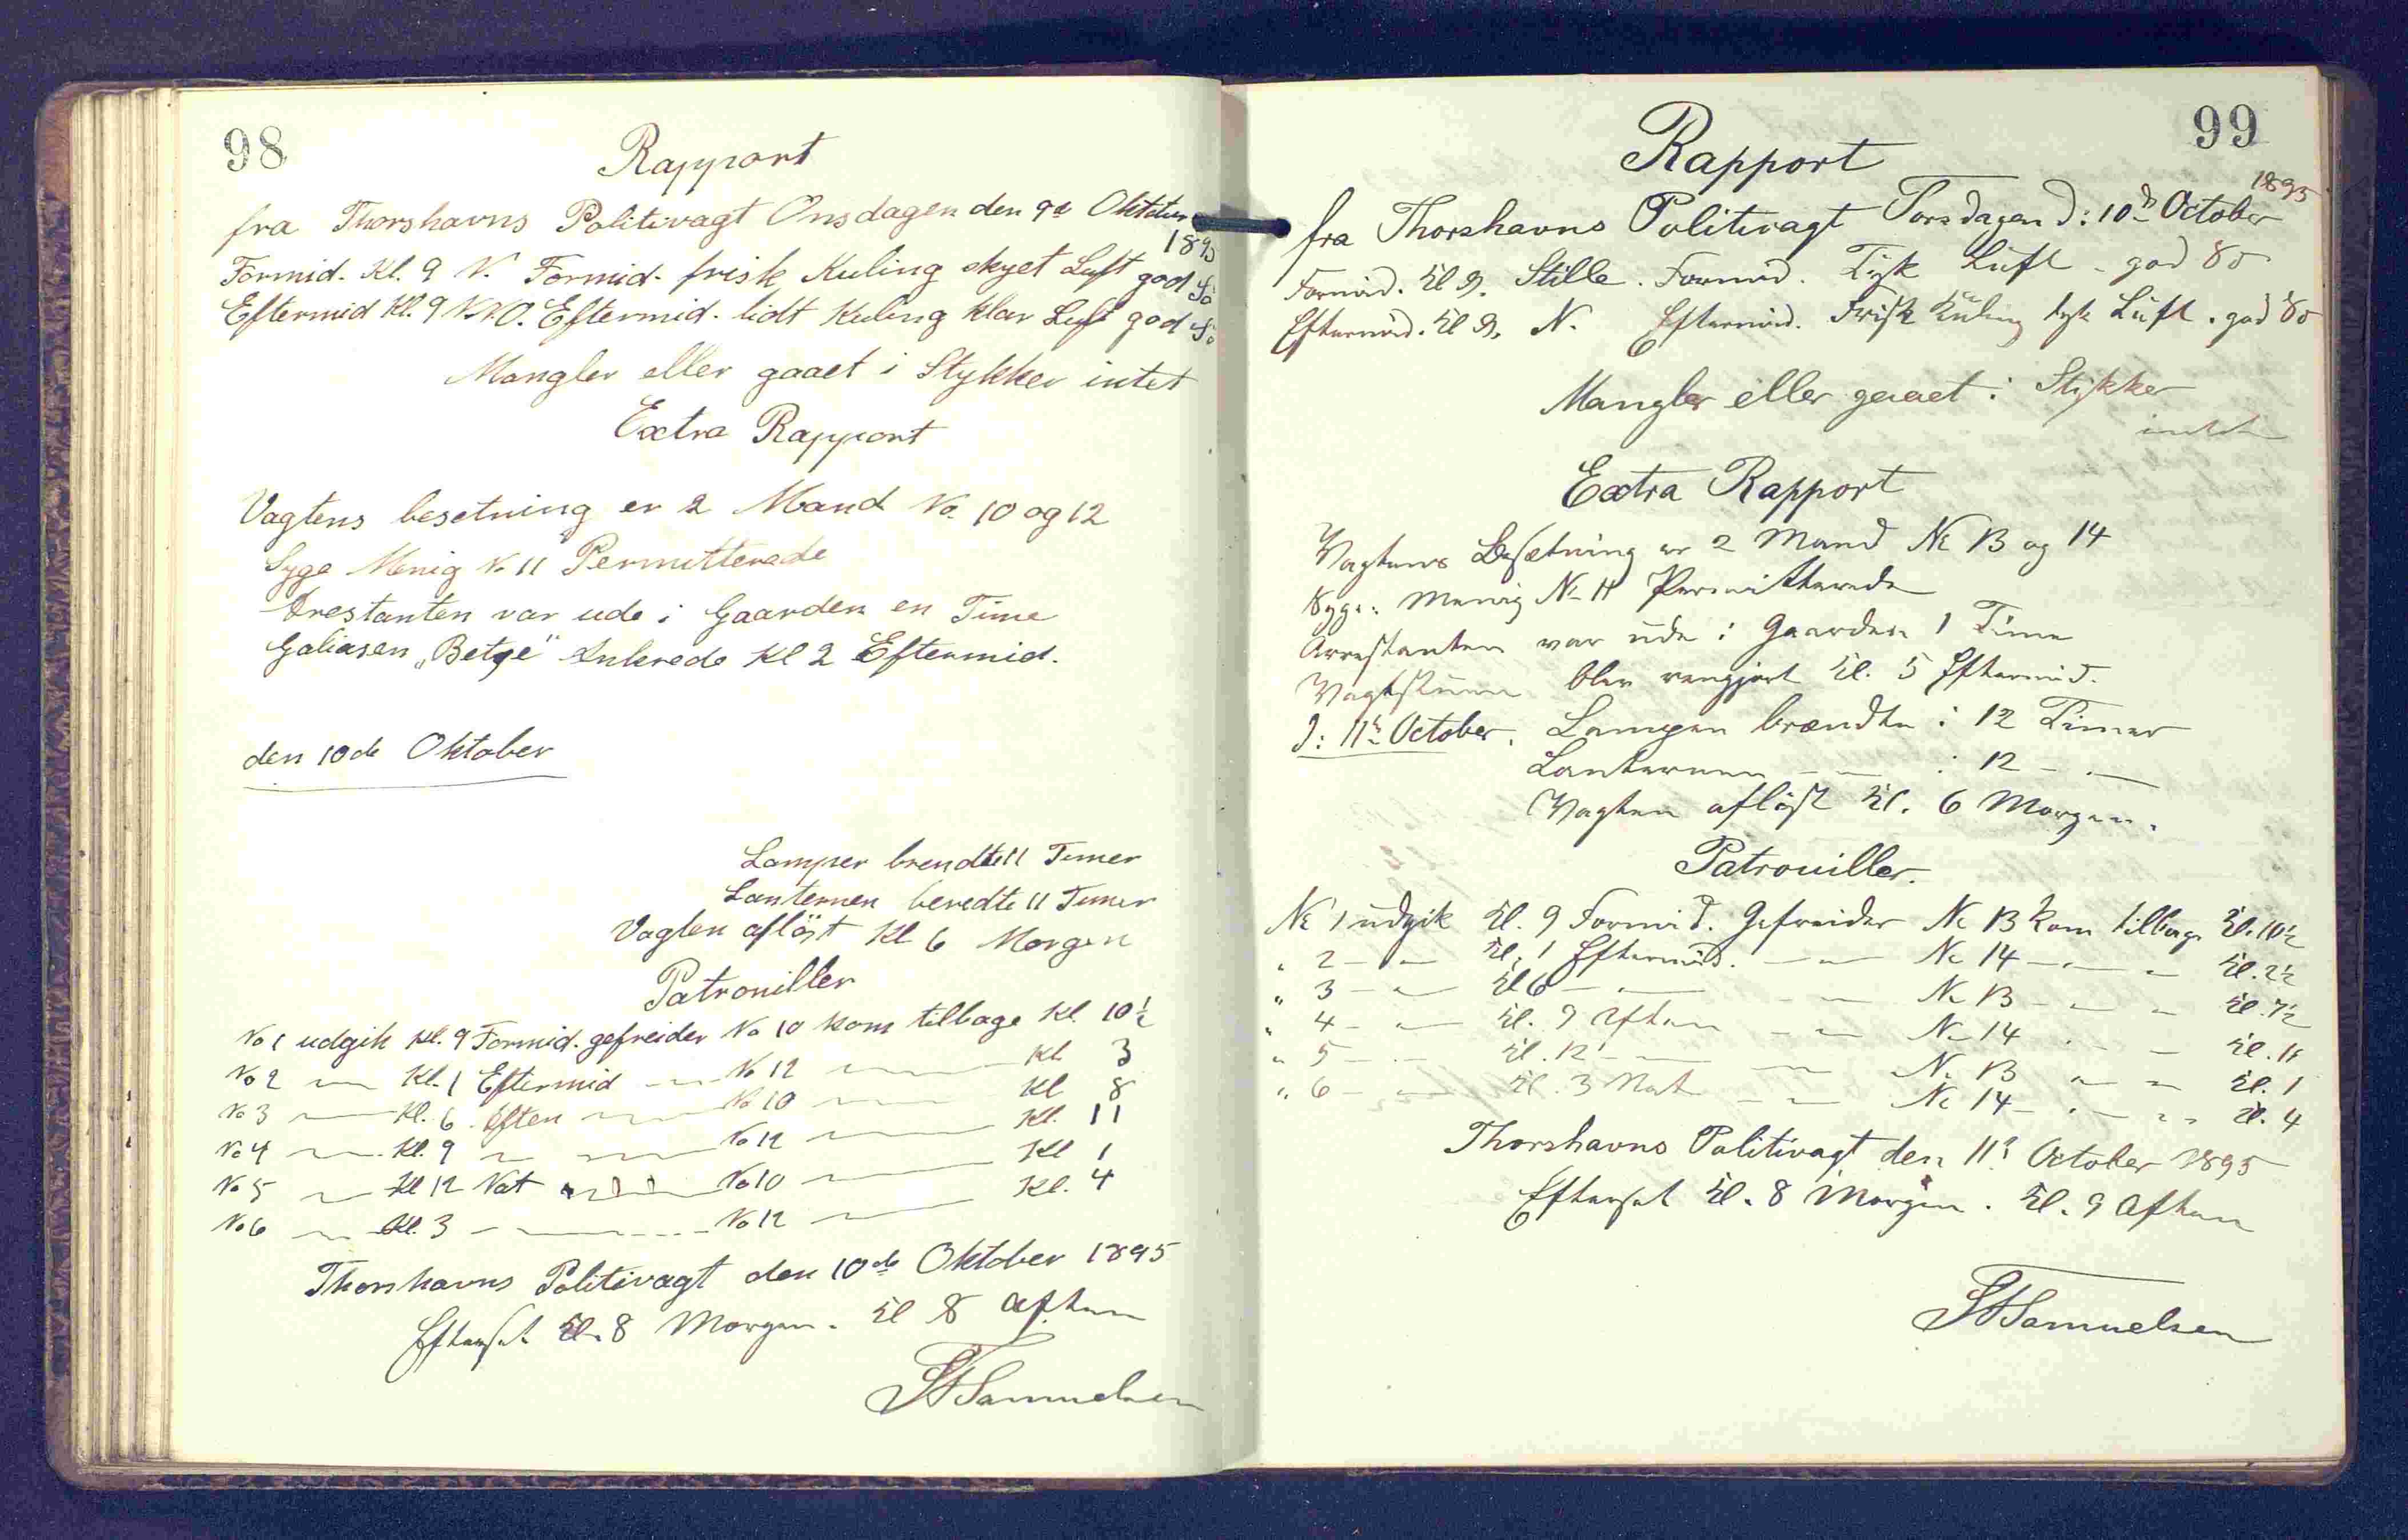 98
Rapport
fra Thorshavns Politivagt Onsdagen den 9d Oktober
1895
Formid. Kl. 9 V. Formid. frisk Kuling skyet Luft god Sö
Eftermid Kl. 9 N.N.O. Eftermid. lidt Kuling klar Luft god Sö
Mangler eller gaaet i Stykker intet
Extra Rapport
Vagtens besetning er 2 Mand No. 10 og 12
Syge Menig No 11 Permitterede
Arestanten var ude i Gaarden en Time
Galiasen „Betsе" Ankrede Kl 2 Eftermid.
den 10de Oktober
Lamper brendte 11 Timer
Lanternen beredte 11 Timer
Vagten aflöst Kl 6 Morgen
Patrouiller
No 1 udgik Kl. 9 Formid. gefreider No 10 kom tilbage Kl. 10½
No 2 — Kl. 1 Eftermid — No 12 — Kl 3
No 3 — Kl. 6 Eften — No 10 — Kl 8
No 4 — Kl. 9 — — No 12 — Kl. 11
No 5 — Kl 12 Nat — No 10 — Kl 1
No 6 — Kl. 3 — — No 12 — Kl. 4
Thorshavns Politivagt den 10de Oktober 1895
Efterset Kl. 8 Morgen. Kl 8 Aften
Samuelsen
99
Rapport
1895
fra Thorshavns Politivagt Torsdagen d: 10d October
Formid. Kl 9. Stille. Formid. Tyk Luft - god Sö
Eftermid. Kl 9. N. Eftermid. Frisk Kuling tyk Luft. god Sö
Mangler eller gaaet i Stykker
intet
Extra Rapport
Vagtens Besætning er 2 Mand No 13 og 14
Syge: Menig No 11 Permitterede
Arrestanten var ude i Gaarden 1 Time
Vagtstuen blev rengjort Kl. 5 Eftermid.
D: 11te October. Lampen brændte i 12 Timer
Lanternen — — i 12 — —
Vagten aflöst Kl. 6 Morgen.
Patrouiller.
No 1 udgik Kl. 9 Formid. Gefreider No 13 kom tilbage Kl. 10½
" 2 — — Kl. 1 Eftermid. — — No 14 — — — Kl. 2½
" 3 — — Kl 6 — — — — No 13 — — — Kl. 7½
" 4 — — Kl. 9 Aften — — No 14 — — — Kl. 11
" 5 — — Kl. 12 — — — No 13 — — Kl. 1
" 6 — — Kl. 3 Nat — — No 14 — — — Kl. 4
Thorshavns Politivagt den 11te October 1895
Efterset Kl. 8 Morgen. Kl. 9 Aften
Samuelsen